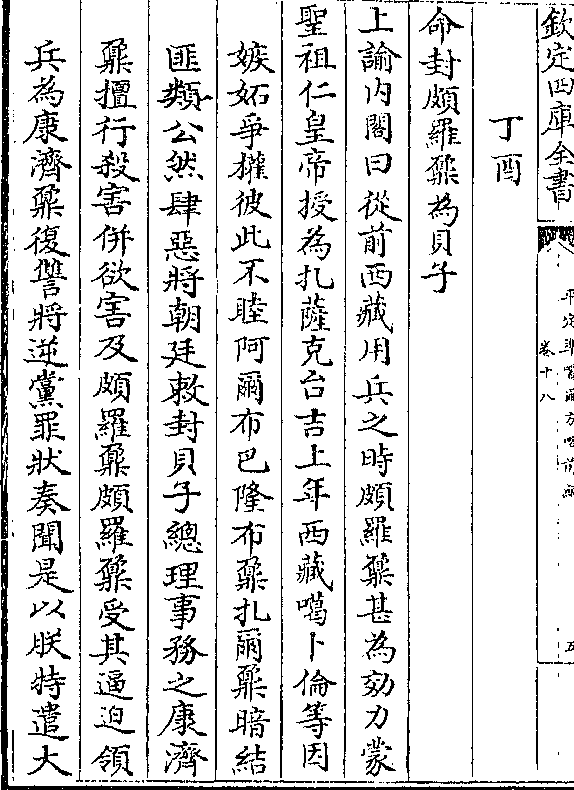 欽定四庫全書
平定準噶爾方略前編
卷十八
五
丁酉
命封頗羅鼐為貝子
上諭內閣曰從前西藏用兵之時頗羅鼐甚為効力蒙
聖祖仁皇帝授為扎薩克台吉上年西藏噶卜倫等因
嫉妬爭權彼此不睦阿爾布巴隆布鼐扎爾鼐暗結
匪類公然肆惡將朝廷敕封貝子總理事務之康濟
鼐擅行殺害併欲害及頗羅鼐頗羅鼐受其逼迫領
兵為康濟鼐復讐將逆黨罪狀奏聞是以朕特遣大